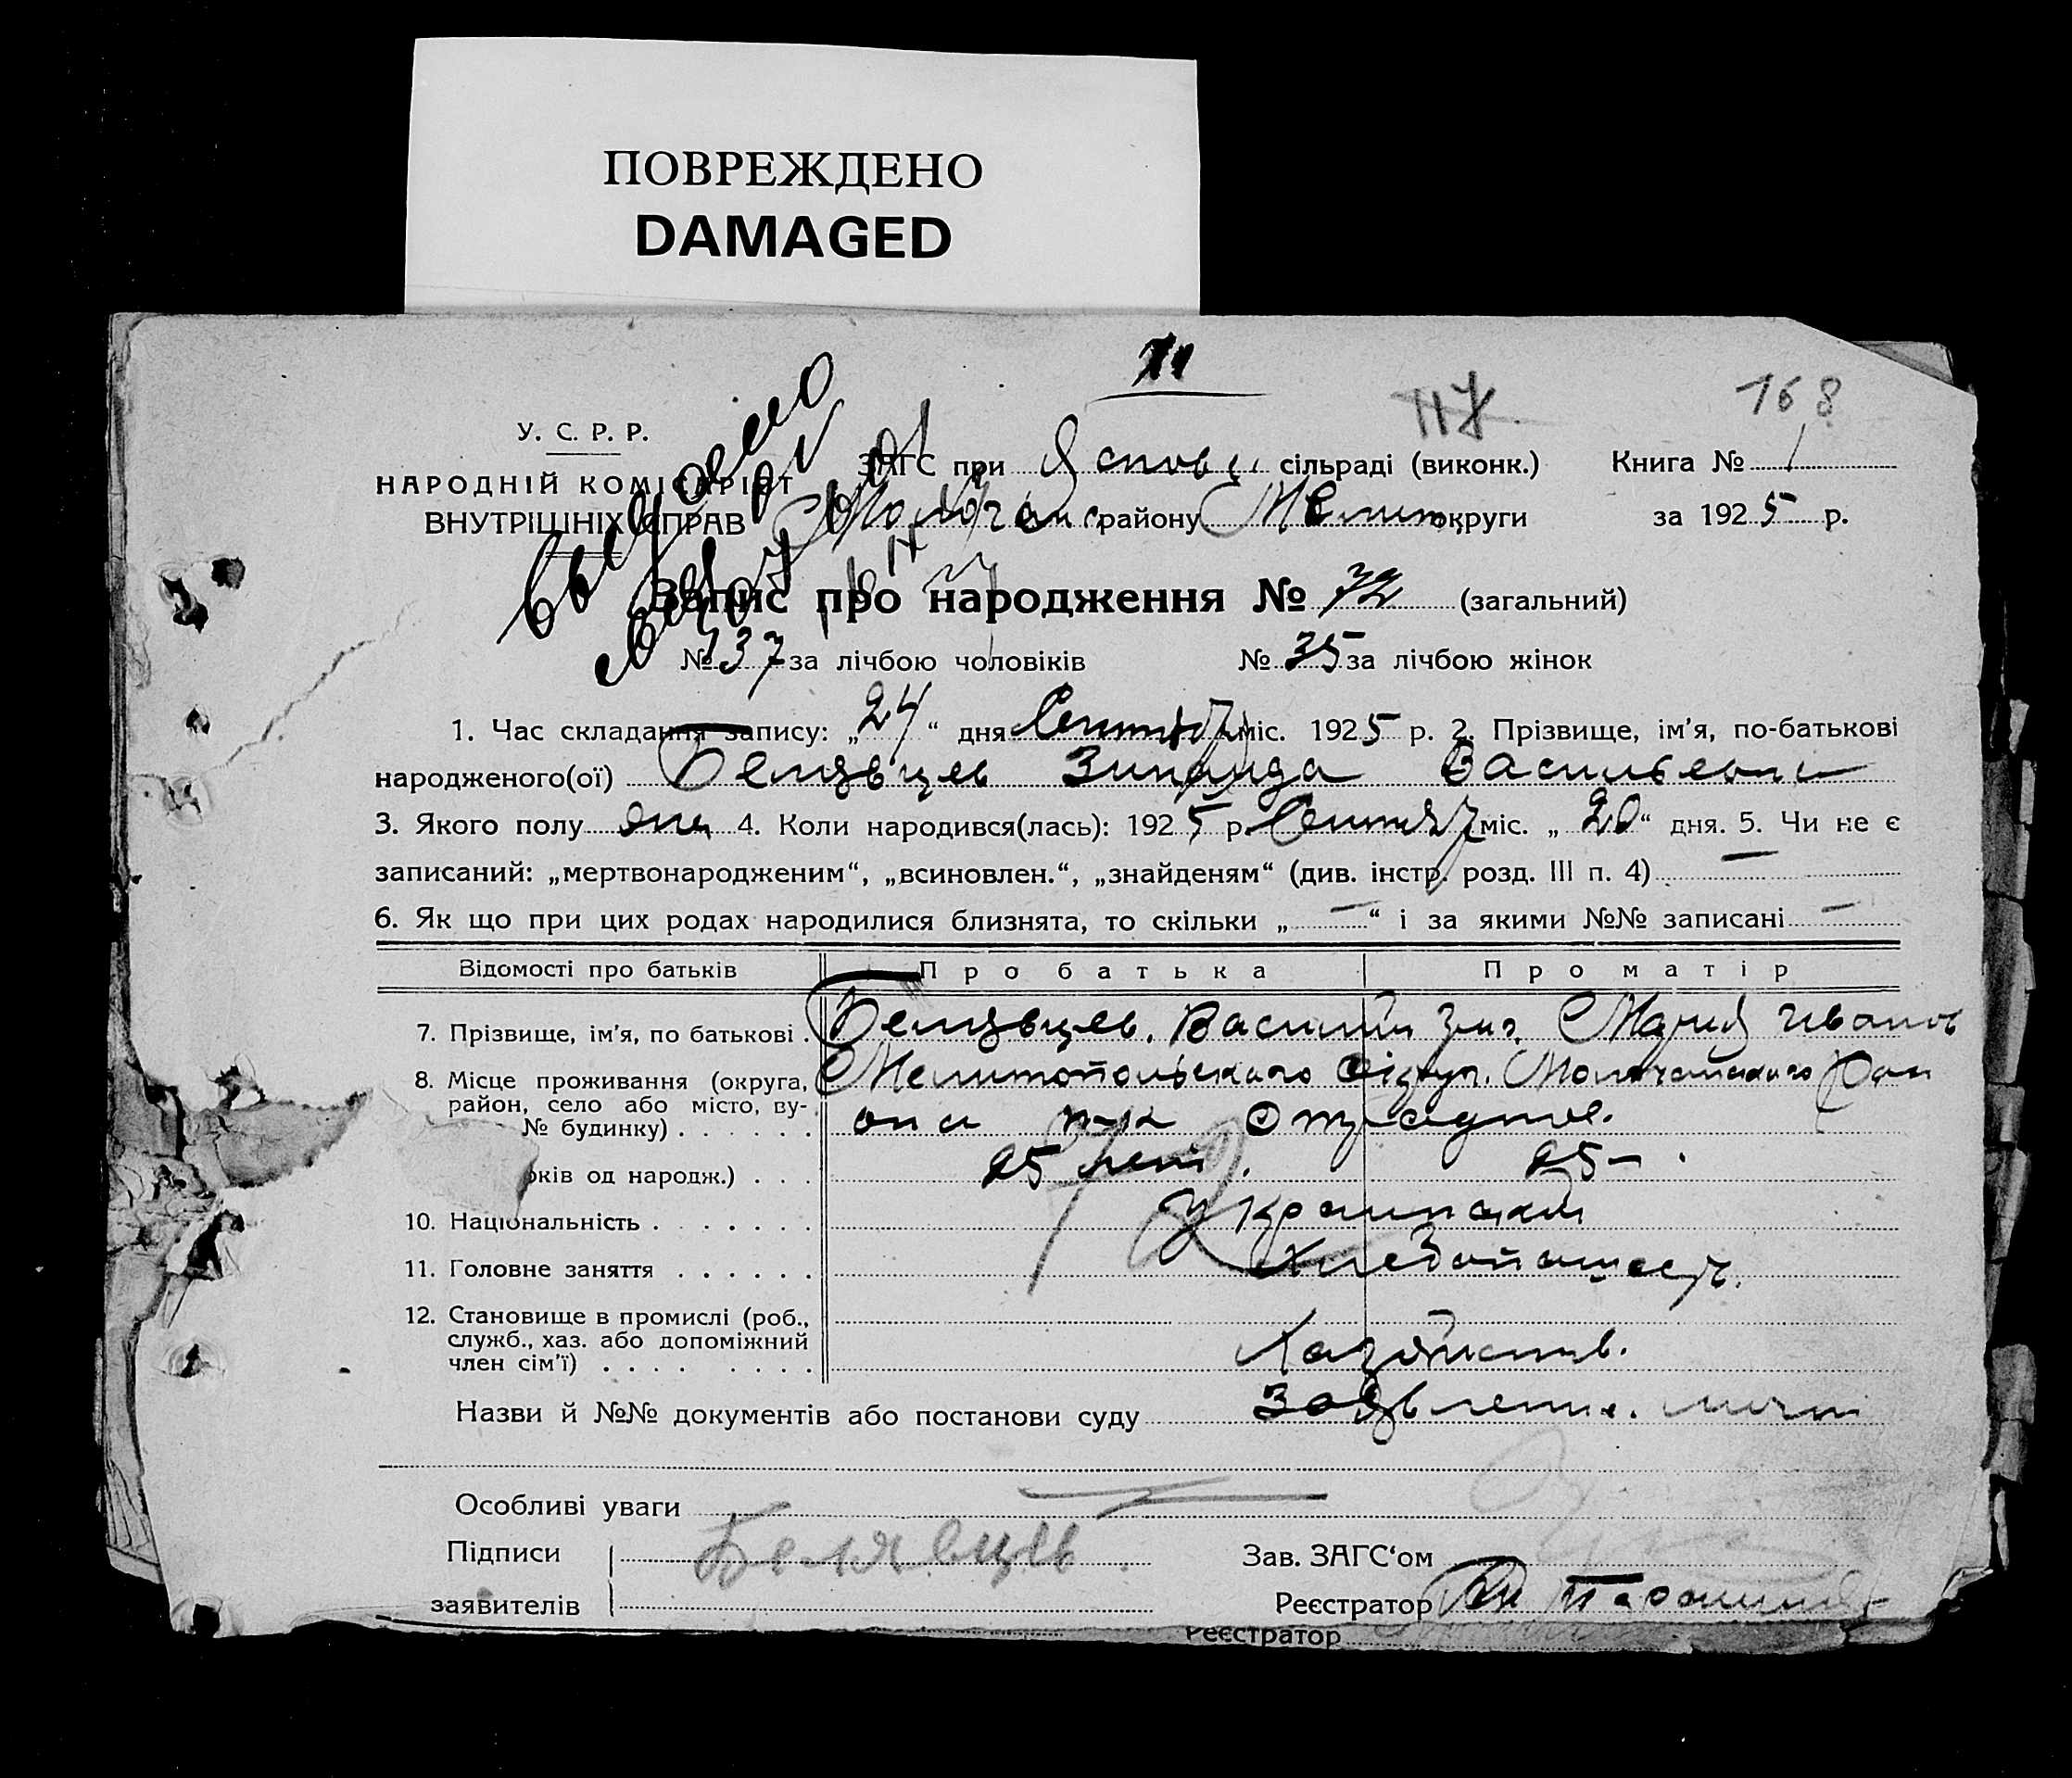 ПОВРЕЖДЕНО
DAMAGED
168
117
У. С. Р. Р.
НАРОДНІЙ КОМІСАРІЯТ
ВНУТРІШНІХ СПРАВ
ЗАГС при сільраді (виконк.) Книга № 1
району Мелит округи за 1925 р.
Запис про народження № 72 (загальний)
№ 37 за лічбою чоловіків № 35 за лічбою жінок
1. Час складання запису: „24“ дня Сентября міс. 1925 р. 2. Прізвище, ім'я, по-батькові
народженого(ої) Белявцев Зинаида Васильевна
3. Якого полу жен 4. Коли народився(лась): 1925 р. Сентября міс. „20“ дня. 5. Чи не є
записаний: „мертвонародженим“, „всиновлен.“, „знайденям“ (див. інстр. розд. III п. 4) —
6. Як що при цих родах народилися близнята, то скільки „—“ і за якими №№ записані —
Відомості про батьків Про батька Про матір
7. Прізвище, ім'я, по батькові . Белявцев. Василий Мария Иванов
8. Місце проживання (округа, Мелитопольского Округ. Молочанского Рай
район, село або місто, ву-
№ будинку) . . . . . . она п-к Отрадное.
оків од народж.) . . . 25 лет. 25 – .
10. Національність . . . . . . . Украинский
11. Головне заняття . . . . . . Хлебопашест.
12. Становище в промислі (роб.,
служб., хаз. або допоміжний
член сім'ї) . . . . . . . . . Хазяйств.
Назви й №№ документів або постанови суду Заявление. личн
Особливі уваги
Підписи Белявцев Зав. ЗАГС‘ом
заявителів Реєстратор
Реєстратор